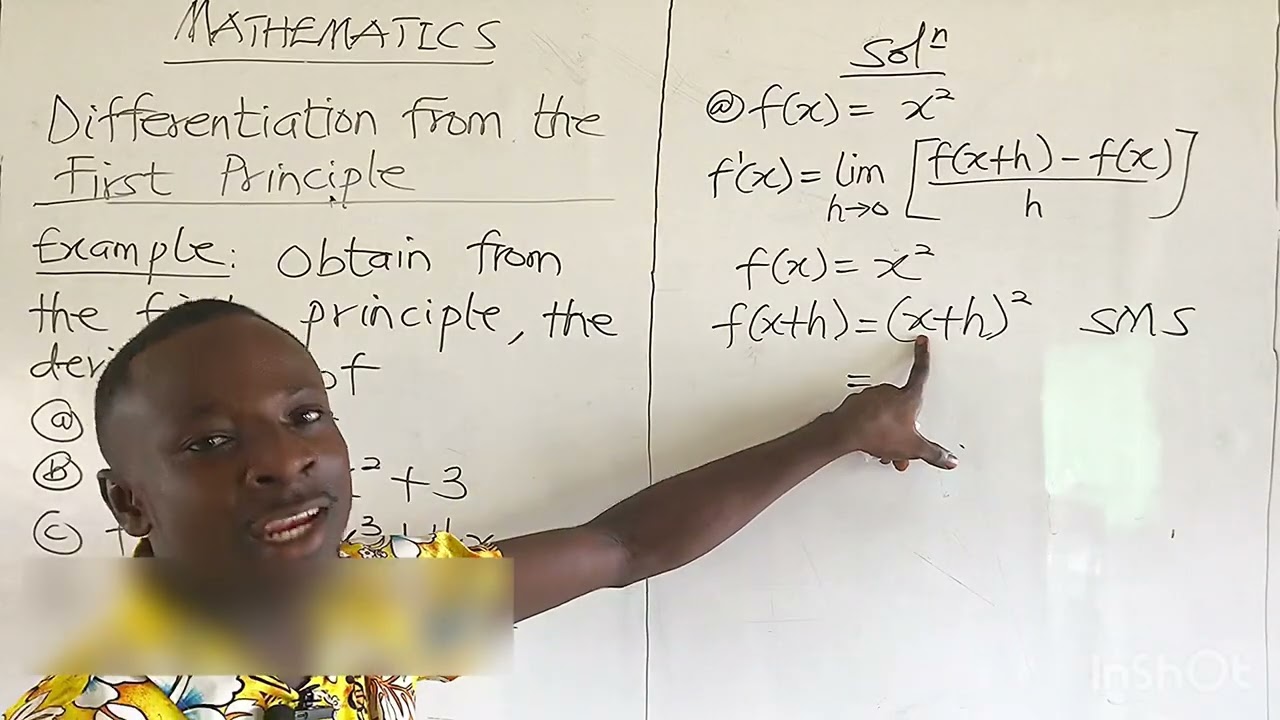 MATHEMATICS
Differentiation from the
First Principle
Example: Obtain from
the principle, the
of
ⓐ
ⓑ ² + 3
ⓒ
Solⁿ
ⓐ f(x) = x²
f'(x) = lim h→0 [f(x+h) - f(x) / h]
f(x) = x²
f(x+h) = (x+h)² SMS
=
InShOt